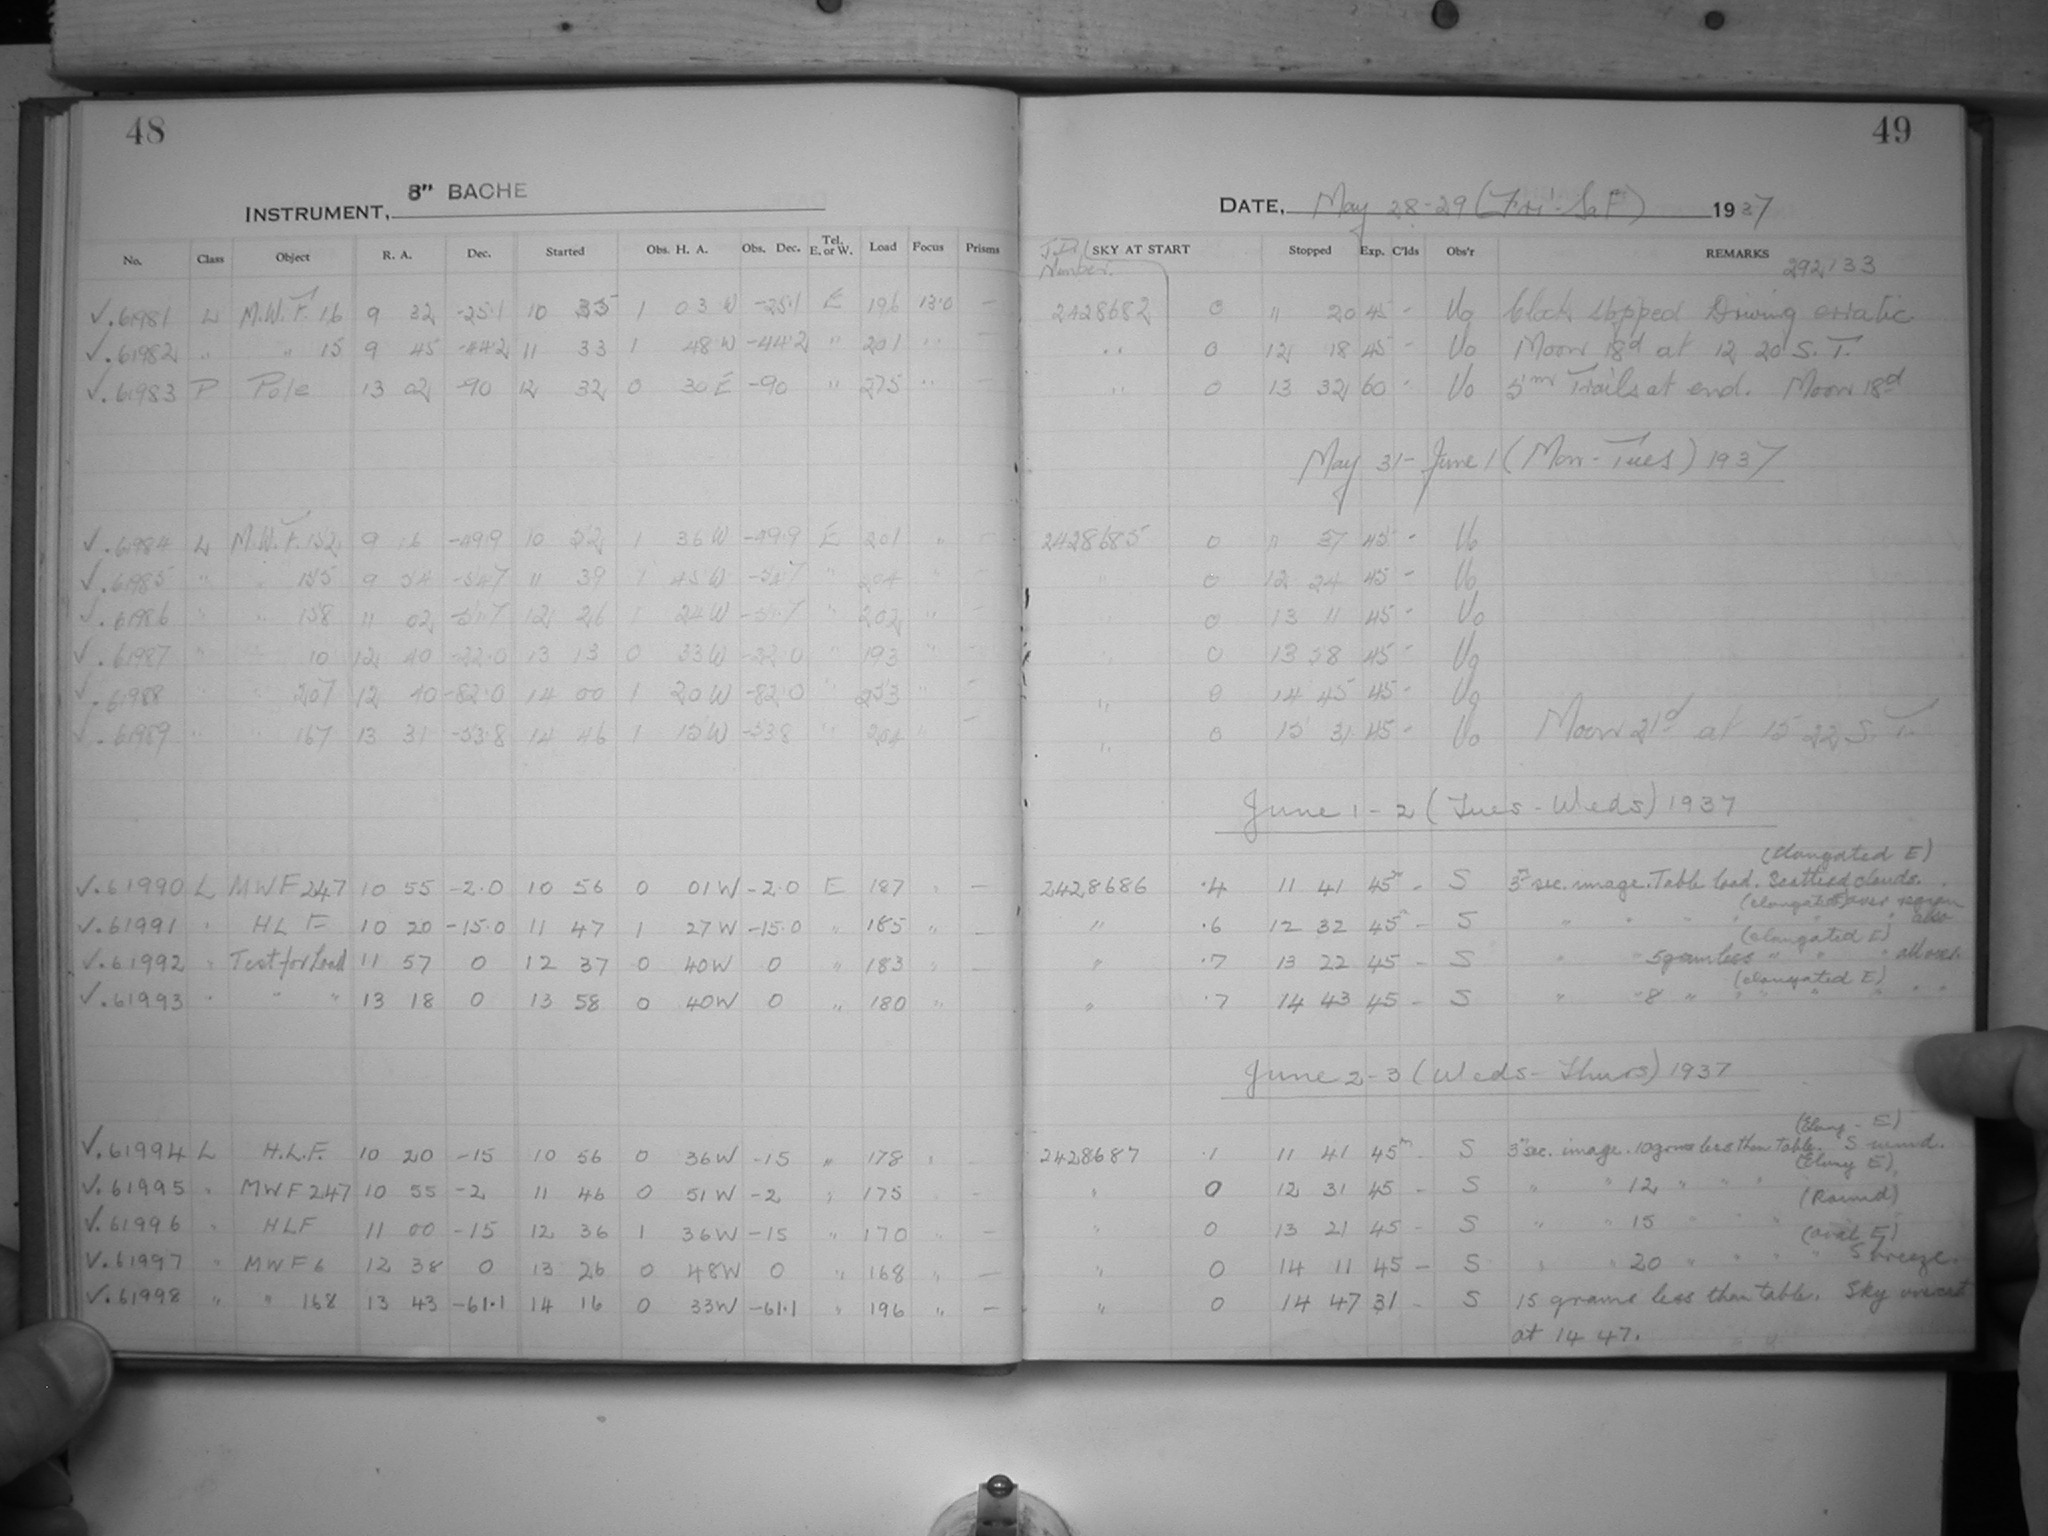 48
49
8" BACHE
INSTRUMENT,
DATE, May 28-29 (Fri - 1937
No. Class Object R. A. Dec. Started Obs. H. A. Obs. Dec. Tel. E. or W. Load Focus Prisms
J.D. Number. SKY AT START Stopped Exp. C'lds Obs'r REMARKS 292133
√.61981 L M.W.F. 16 9 32 -25.1 10 35 1 03 W -25.1 E 196 13.0 — 2428682 0 " 20 45 - Uo Clock stopped Driving erratic
√.61982 " " 15 9 45 -44.2 11 33 1 48 W -44.2 " 201 " — " 0 12 18 45 - Uo Moon 18d at 12 20 S.T.
√.61983 P Pole 13 02 -90 12 32 0 30 E -90 " 275 " — " 0 13 32 60 " Uo 5m Trails at end. Moon 18d
May 31 - June 1 (Mon - Tues) 1937
√.61984 L M.W.F. 152 9 16 -49.9 10 52 1 36 W -49.9 E 201 " — 2428685 0 " 37 45 - Uo
√.61985 " " 155 9 54 -54.7 11 39 1 45 W -54.7 " 204 " — " 0 12 24 45 - Uo
√.61986 " " 158 11 02 -51.7 12 26 1 24 W -51.7 " 202 " — " 0 13 11 45 - Uo
√.61987 " " 10 12 40 -22.0 13 13 0 33 W -22.0 " 193 " — " 0 13 58 45 - Uo
√.61988 " " 207 12 40 -82.0 14 00 1 20 W -82.0 " 253 " — " 0 14 45 45 - Uo
√.61989 " " 167 13 31 -53.8 14 46 1 15 W -53.8 " 204 " — " 0 15 31 45 - Uo Moon 21d at 15 22 S.T.
June 1 - 2 (Tues - Weds) 1937
(Elongated E)
√.61990 L MWF 247 10 55 -2.0 10 56 0 01 W -2.0 E 187 " — 2428686 .4 11 41 45m - S 3 sec. image. Table load. Scattered clouds.
(elongated) over region
√.61991 " HLF 10 20 -15.0 11 47 1 27 W -15.0 " 185 " — " .6 12 32 45m - S " " " " " also
(elongated E)
√.61992 " Test for Load 11 57 0 12 37 0 40 W 0 " 183 " — " .7 13 22 45 - S " " 5 gram less " " " all over.
(elongated E)
√.61993 " " " 13 18 0 13 58 0 40 W 0 " 180 " " .7 14 43 45 - S " " 8 " " " " " " "
June 2 - 3 (Weds - Thurs) 1937
(Elong - E)
√.61994 L H.L.F. 10 20 -15 10 56 0 36 W -15 " 178 " 2428687 .1 11 41 45m - S 3 sec. image. 10 grams less than table. S wind.
(Elong E)
√.61995 " MWF 247 10 55 -2 11 46 0 51 W -2 " 175 — " 0 12 31 45 - S " " 12 " " "
(Round)
√.61996 " HLF 11 00 -15 12 36 1 36 W -15 " 170 " — " 0 13 21 45 - S " " 15 " "
(oval E)
√.61997 " MWF 6 12 38 0 13 26 0 48 W 0 " 168 " — " 0 14 11 45 - S " " 20 " " " " S breeze.
√.61998 " " 168 13 43 -61.1 14 16 0 33 W -61.1 " 196 " — " 0 14 47 31 - S 15 grams less than table. Sky overcast
at 14 47.